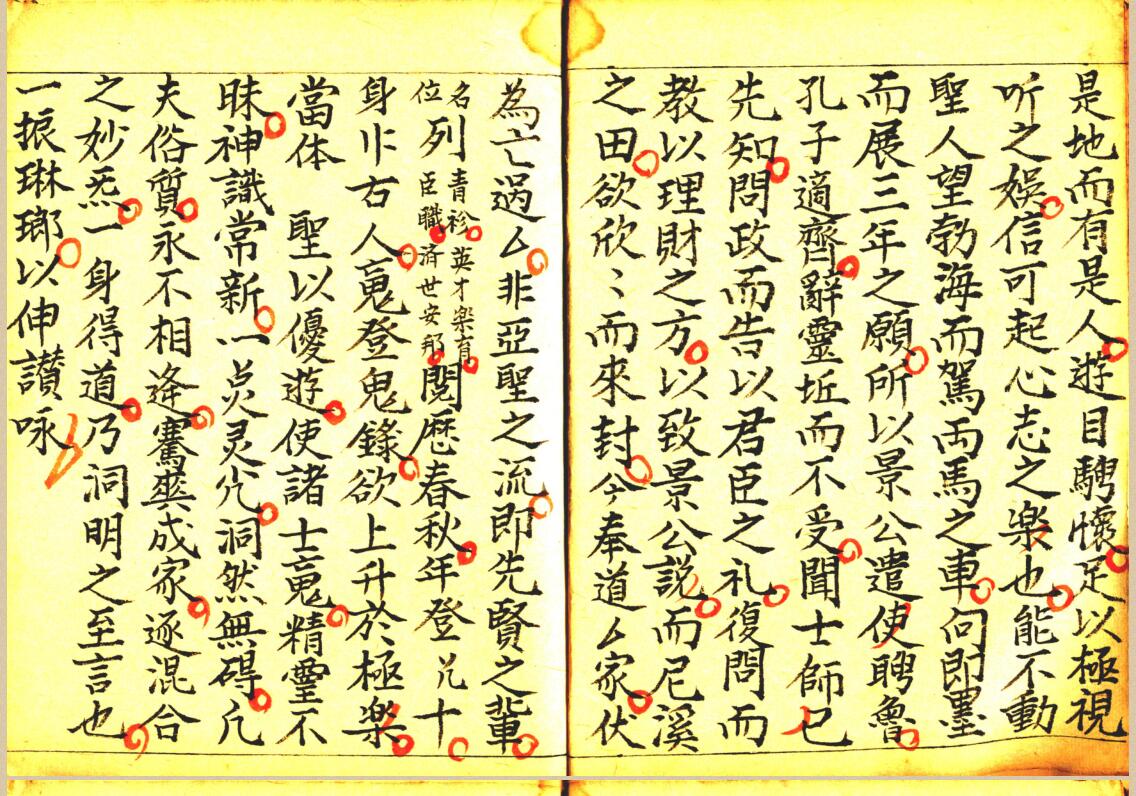 是地而有是人遊目騁懷足以極視
听之娯信可起心志之楽也能不動
聖人望勃海而駕両馬之車向即墨
而展三年之願所以景公遣使聘魯
孔子適齊辭靈丘而不受聞士師已
先知問政而告以君臣之礼復問而
教以理財之方以致景公説而尼溪
之田欲欣〻而來封今奉道厶家伏
為亡過厶非亞聖之流即先賢之輩
名位列青衿臣職英才楽育済世安邦閲歴春秋年登几十
身作古人寃登鬼錄欲上升於極楽
當体 聖以優遊使諸士寃精霊不
昧神識常新一点灵光洞然無碍凡
夫俗質永不相逄騫英成家逐混合
之妙炁一身得道乃洞明之至言也
一振琳瑯以伸讃咏